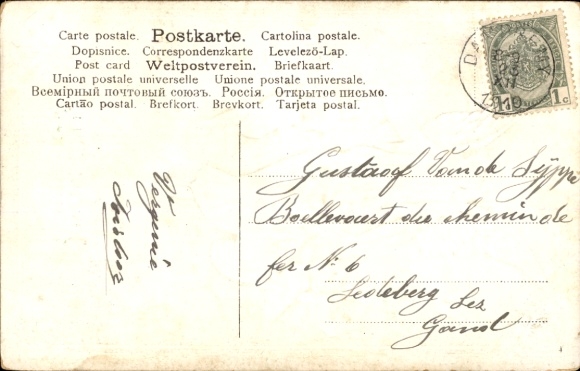 Carte postale. Postkarte. Cartolina postale.
Dopisnice. Correspondenzkarte Levelező-Lap.
Post card Weltpostverein. Briefkaart.
Union postale universelle Unione postale universale.
Всемірный почтовый союзъ. Россія. Открытое письмо.
Cartão postal. Brefkort. Brevkort. Tarjeta postal.
1 1c
Gustaaf Van de
Boellevaert du chemin de
fer No 6
Ledeberg Lez
Gand